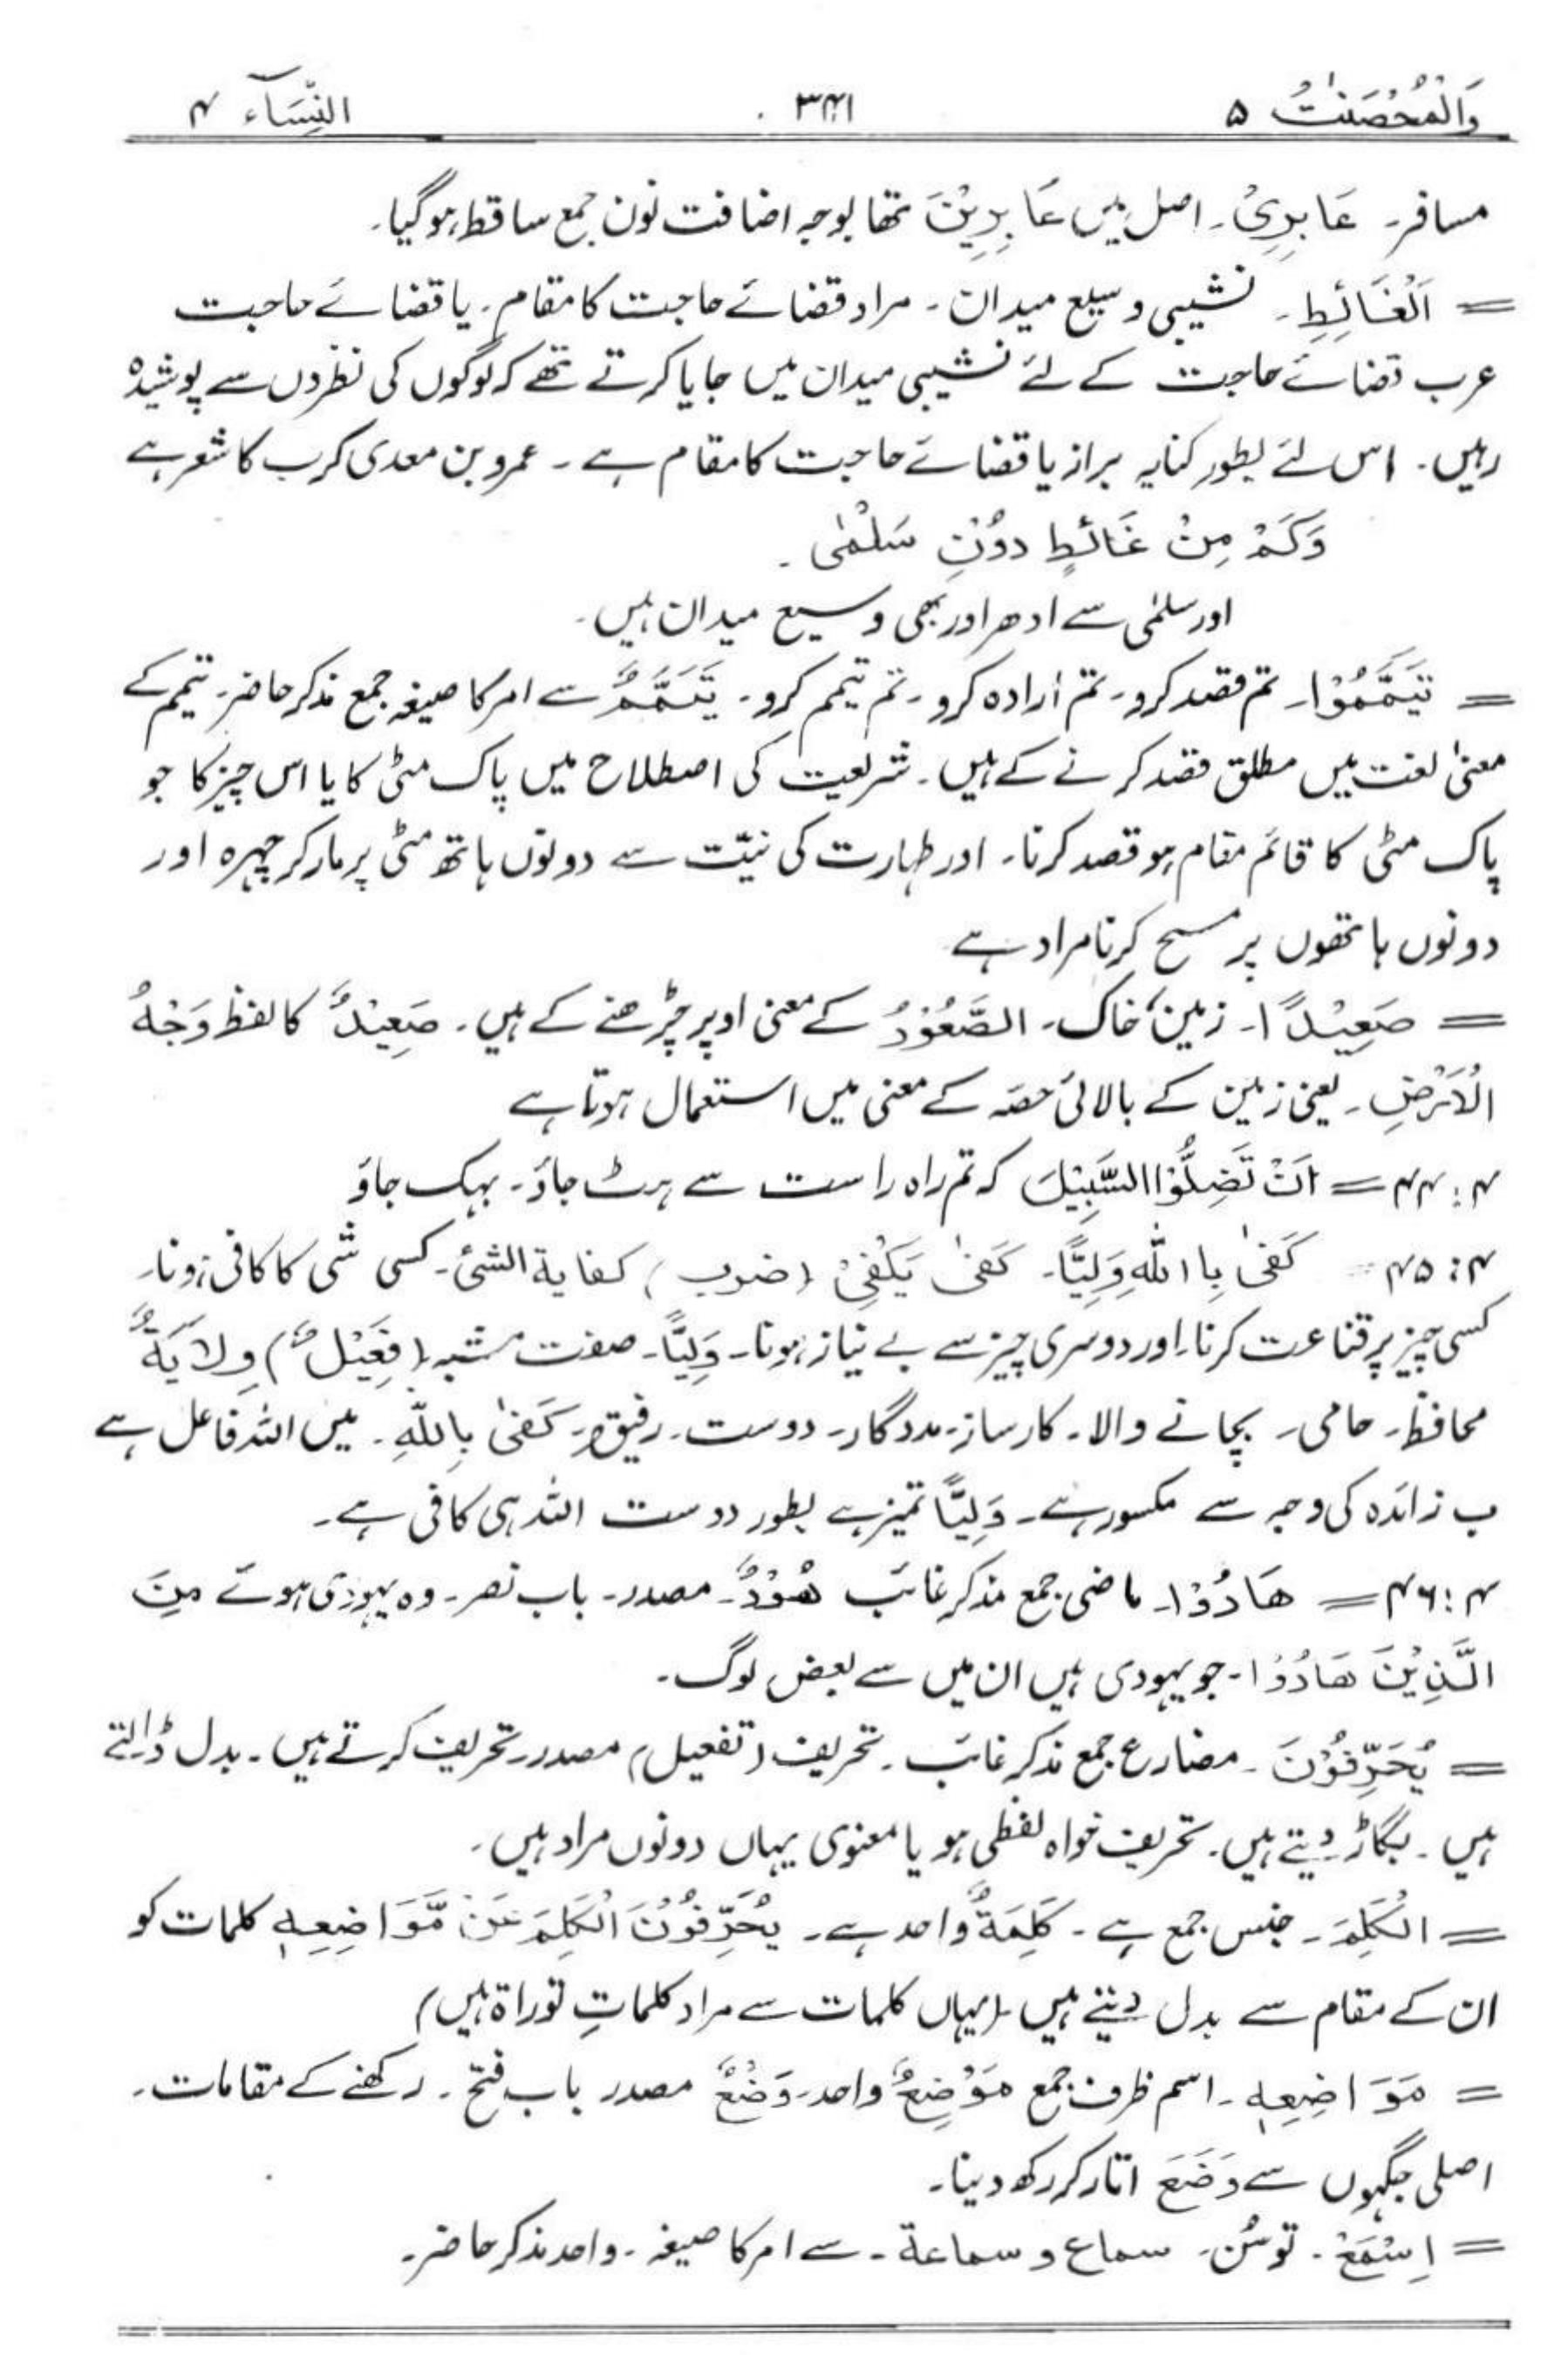 وَالْمُحْصَنٰتُ ۵ ۳۴۱ النِّسَآء ۴
مسافر۔ عَابِرِیْ۔ اصل میں عَابِرِیْنَ تھا بوجہ اضافت نون جمع ساقط ہوگیا۔
= اَلْغَائِطِ۔ نشیبی وسیع میدان۔ مراد قضائے حاجت کا مقام۔ یا قضائے حاجت
عرب قضائے حاجت کے لئے نشیبی میدان میں جایا کرتے تھے کہ لوگوں کی نظروں سے پوشیدہ
رہیں۔ اس لئے بطور کنایہ براز یا قضائے حاجت کا مقام ہے۔ عمرو بن معدی کرب کا شعر ہے
وَكَمْ مِنْ غَائطٍ دوُنِ سَلْمٰی۔
اور سلمٰی سے ادھر اور بھی وسیع میدان ہیں۔
= تَیَمَّمُوْا۔ تم قصد کرو۔ تم ارادہ کرو۔ تم تیمم کرو۔ تَیَمُّمٌ سے امر کا صیغہ جمع مذکر حاضر۔ تیمم کے
معنیٰ لغت میں مطلق قصد کرنے کے ہیں۔ شریعت کی اصطلاح میں پاک مٹی کا یا اس چیز کا جو
پاک مٹی کا قائم مقام ہو قصد کرنا۔ اور طہارت کی نیّت سے دونوں ہاتھ مٹی پر مار کر چہرہ اور
دونوں ہاتھوں پر مسح کرنا مراد ہے
= صَعِیْدًا۔ زمین، خاک۔ الصَّعُوْدُ کے معنی اوپر چڑھنے کے ہیں۔ صَعِیْدٌ کا لفظ وَجْهُ
الْاَرْضِ۔ یعنی زمین کے بالائی حصّہ کے معنی میں استعمال ہوتا ہے
۴:۴۴ = اَنْ تَضِلُّوْا السَّبِیْلَ کہ تم راہ راست سے ہٹ جاؤ۔ بہک جاؤ
۴:۴۵ = كَفىٰ بِاللّٰهِ وَلِیًّا۔ كَفىٰ یَكْفِیْ (ضرب) كفاية الشئ۔ کسی شی کا کافی ہونا۔
کسی چیز پر قناعت کرنا۔ اور دوسری چیز سے بے نیاز ہونا۔ وَلِیًّا۔ صفت مشبہ (فَعِیْلٌ) وِلَایَةٌ
محافظ۔ حامی۔ بچانے والا۔ کارساز۔ مددگار۔ دوست۔ رفیق۔ كَفىٰ بِاللّٰهِ۔ میں اللہ فاعل ہے
ب زائدہ کی وجہ سے مکسور ہے۔ وَلِیًّا تمیز ہے بطور دوست اللہ ہی کافی ہے۔
۴:۴۶ = هَادُوْا۔ ماضی جمع مذکر غائب هَوْدٌ۔ مصدر۔ باب نصر۔ وہ یہودی ہوئے مِنَ
الَّذِیْنَ هَادُوْا۔ جو یہودی ہیں ان میں سے بعض لوگ۔
= یُحَرِّفُوْنَ۔ مضارع جمع مذکر غائب۔ تحریف (تفعیل) مصدر۔ تحریف کرتے ہیں۔ بدل ڈالتے
ہیں۔ بگاڑ دیتے ہیں۔ تحریف خواہ لفظی ہو یا معنوی یہاں دونوں مراد ہیں۔
= الْكَلِمَ۔ جنس جمع ہے۔ كَلِمَةٌ واحد ہے۔ یُحَرِّفُوْنَ الْكَلِمَ عَنْ مَّوَاضِعِهٖ کلمات کو
ان کے مقام سے بدل دیتے ہیں۔ (یہاں کلمات سے مراد کلماتِ توراۃ ہیں)
= مَوَاضِعِهٖ۔ اسم ظرف جمع مَوْضِعٌ واحد۔ وَضْعٌ مصدر باب فتح۔ رکھنے کے مقامات۔
اصلی جگہوں سے وَضَعَ اتار کر رکھ دینا۔
= اِسْمَعْ۔ تو سُن۔ سماع و سماعة۔ سے امر کا صیغہ۔ واحد مذکر حاضر۔